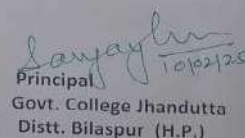 Sanjay
10/02/25
Principal
Govt. College Jhandutta
Distt. Bilaspur (H.P.)